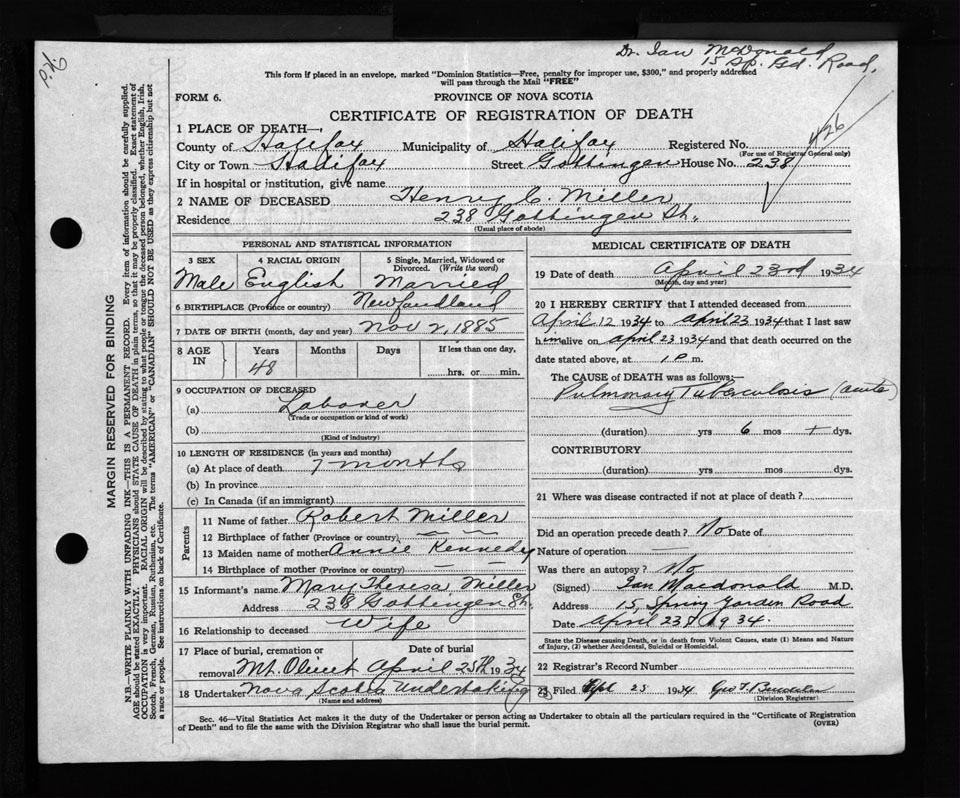 Dr. Ian McDonald
15 Sp. Gd. Road,
P.H.
This form if placed in an envelope, marked "Dominion Statistics—Free, penalty for improper use, $300," and properly addressed
will pass through the Mail "FREE"
FORM 6.
PROVINCE OF NOVA SCOTIA
CERTIFICATE OF REGISTRATION OF DEATH
426
1 PLACE OF DEATH—
County of Halifax Municipality of Halifax Registered No.
(For use of Registrar General only)
City or Town Halifax Street Gottingen House No. 238
If in hospital or institution, give name
2 NAME OF DECEASED Henry C. Miller
Residence 238 Gottingen St.
(Usual place of abode)
PERSONAL AND STATISTICAL INFORMATION
3 SEX 4 RACIAL ORIGIN 5 Single, Married, Widowed or Divorced. (Write the word)
Male English Married
6 BIRTHPLACE (Province or country) Newfoundland
7 DATE OF BIRTH (month, day and year) Nov 2, 1885
8 AGE IN Years Months Days If less than one day,
48 hrs. or min.
9 OCCUPATION OF DECEASED
(a) Laborer
(Trade or occupation or kind of work)
(b)
(Kind of industry)
10 LENGTH OF RESIDENCE (in years and months)
(a) At place of death 7 months
(b) In province
(c) In Canada (if an immigrant)
Parents
11 Name of father Robert Miller
12 Birthplace of father (Province or country)
13 Maiden name of mother Annie Kennedy
14 Birthplace of mother (Province or country) — —
15 Informant's name Mary Theresa Miller
Address 238 Gottingen St.
16 Relationship to deceased Wife
17 Place of burial, cremation or removal Date of burial
Mt. Olivet April 25th 1934
18 Undertaker Nova Scotia Undertaking
(Name and address)
MEDICAL CERTIFICATE OF DEATH
19 Date of death April 23rd 1934
(Month, day and year)
20 I HEREBY CERTIFY that I attended deceased from
April 12 1934 to April 23 1934 that I last saw
him alive on April 23 1934 and that death occurred on the
date stated above, at 1 p m.
The CAUSE OF DEATH was as follows:—
Pulmonary Tuberculosis (acute)
(duration) yrs 6 mos + dys.
CONTRIBUTORY
(duration) yrs mos dys.
21 Where was disease contracted if not at place of death?
Did an operation precede death? No Date of
Nature of operation —
Was there an autopsy? No
(Signed) Ian Macdonald M.D.
Address 15, Spring Garden Road
Date April 23rd 1934.
State the Disease causing Death, or in death from Violent Causes, state (1) Means and Nature
of Injury, (2) whether Accidental, Suicidal or Homicidal.
22 Registrar's Record Number
23 Filed Apl 25 1934 Geo F.
(Division Registrar)
Sec. 46—Vital Statistics Act makes it the duty of the Undertaker or person acting as Undertaker to obtain all the particulars required in the "Certificate of Registration
of Death" and to file the same with the Division Registrar who shall issue the burial permit. (OVER)
MARGIN RESERVED FOR BINDING
N.B.—WRITE PLAINLY WITH UNFADING INK—THIS IS A PERMANENT RECORD. Every item of information should be carefully supplied.
AGE should be stated EXACTLY. PHYSICIANS should STATE CAUSE OF DEATH in plain terms, so that it may be properly classified. Exact statement of
OCCUPATION is very important. RACIAL ORIGIN will be described by stating to what people or tongue the deceased person belonged, whether English, Irish,
Scotch, French, German, Russian, Ruthenian, etc. The terms "AMERICAN" or "CANADIAN" SHOULD NOT BE USED as they express citizenship but not
a race or people. See instructions on back of Certificate.